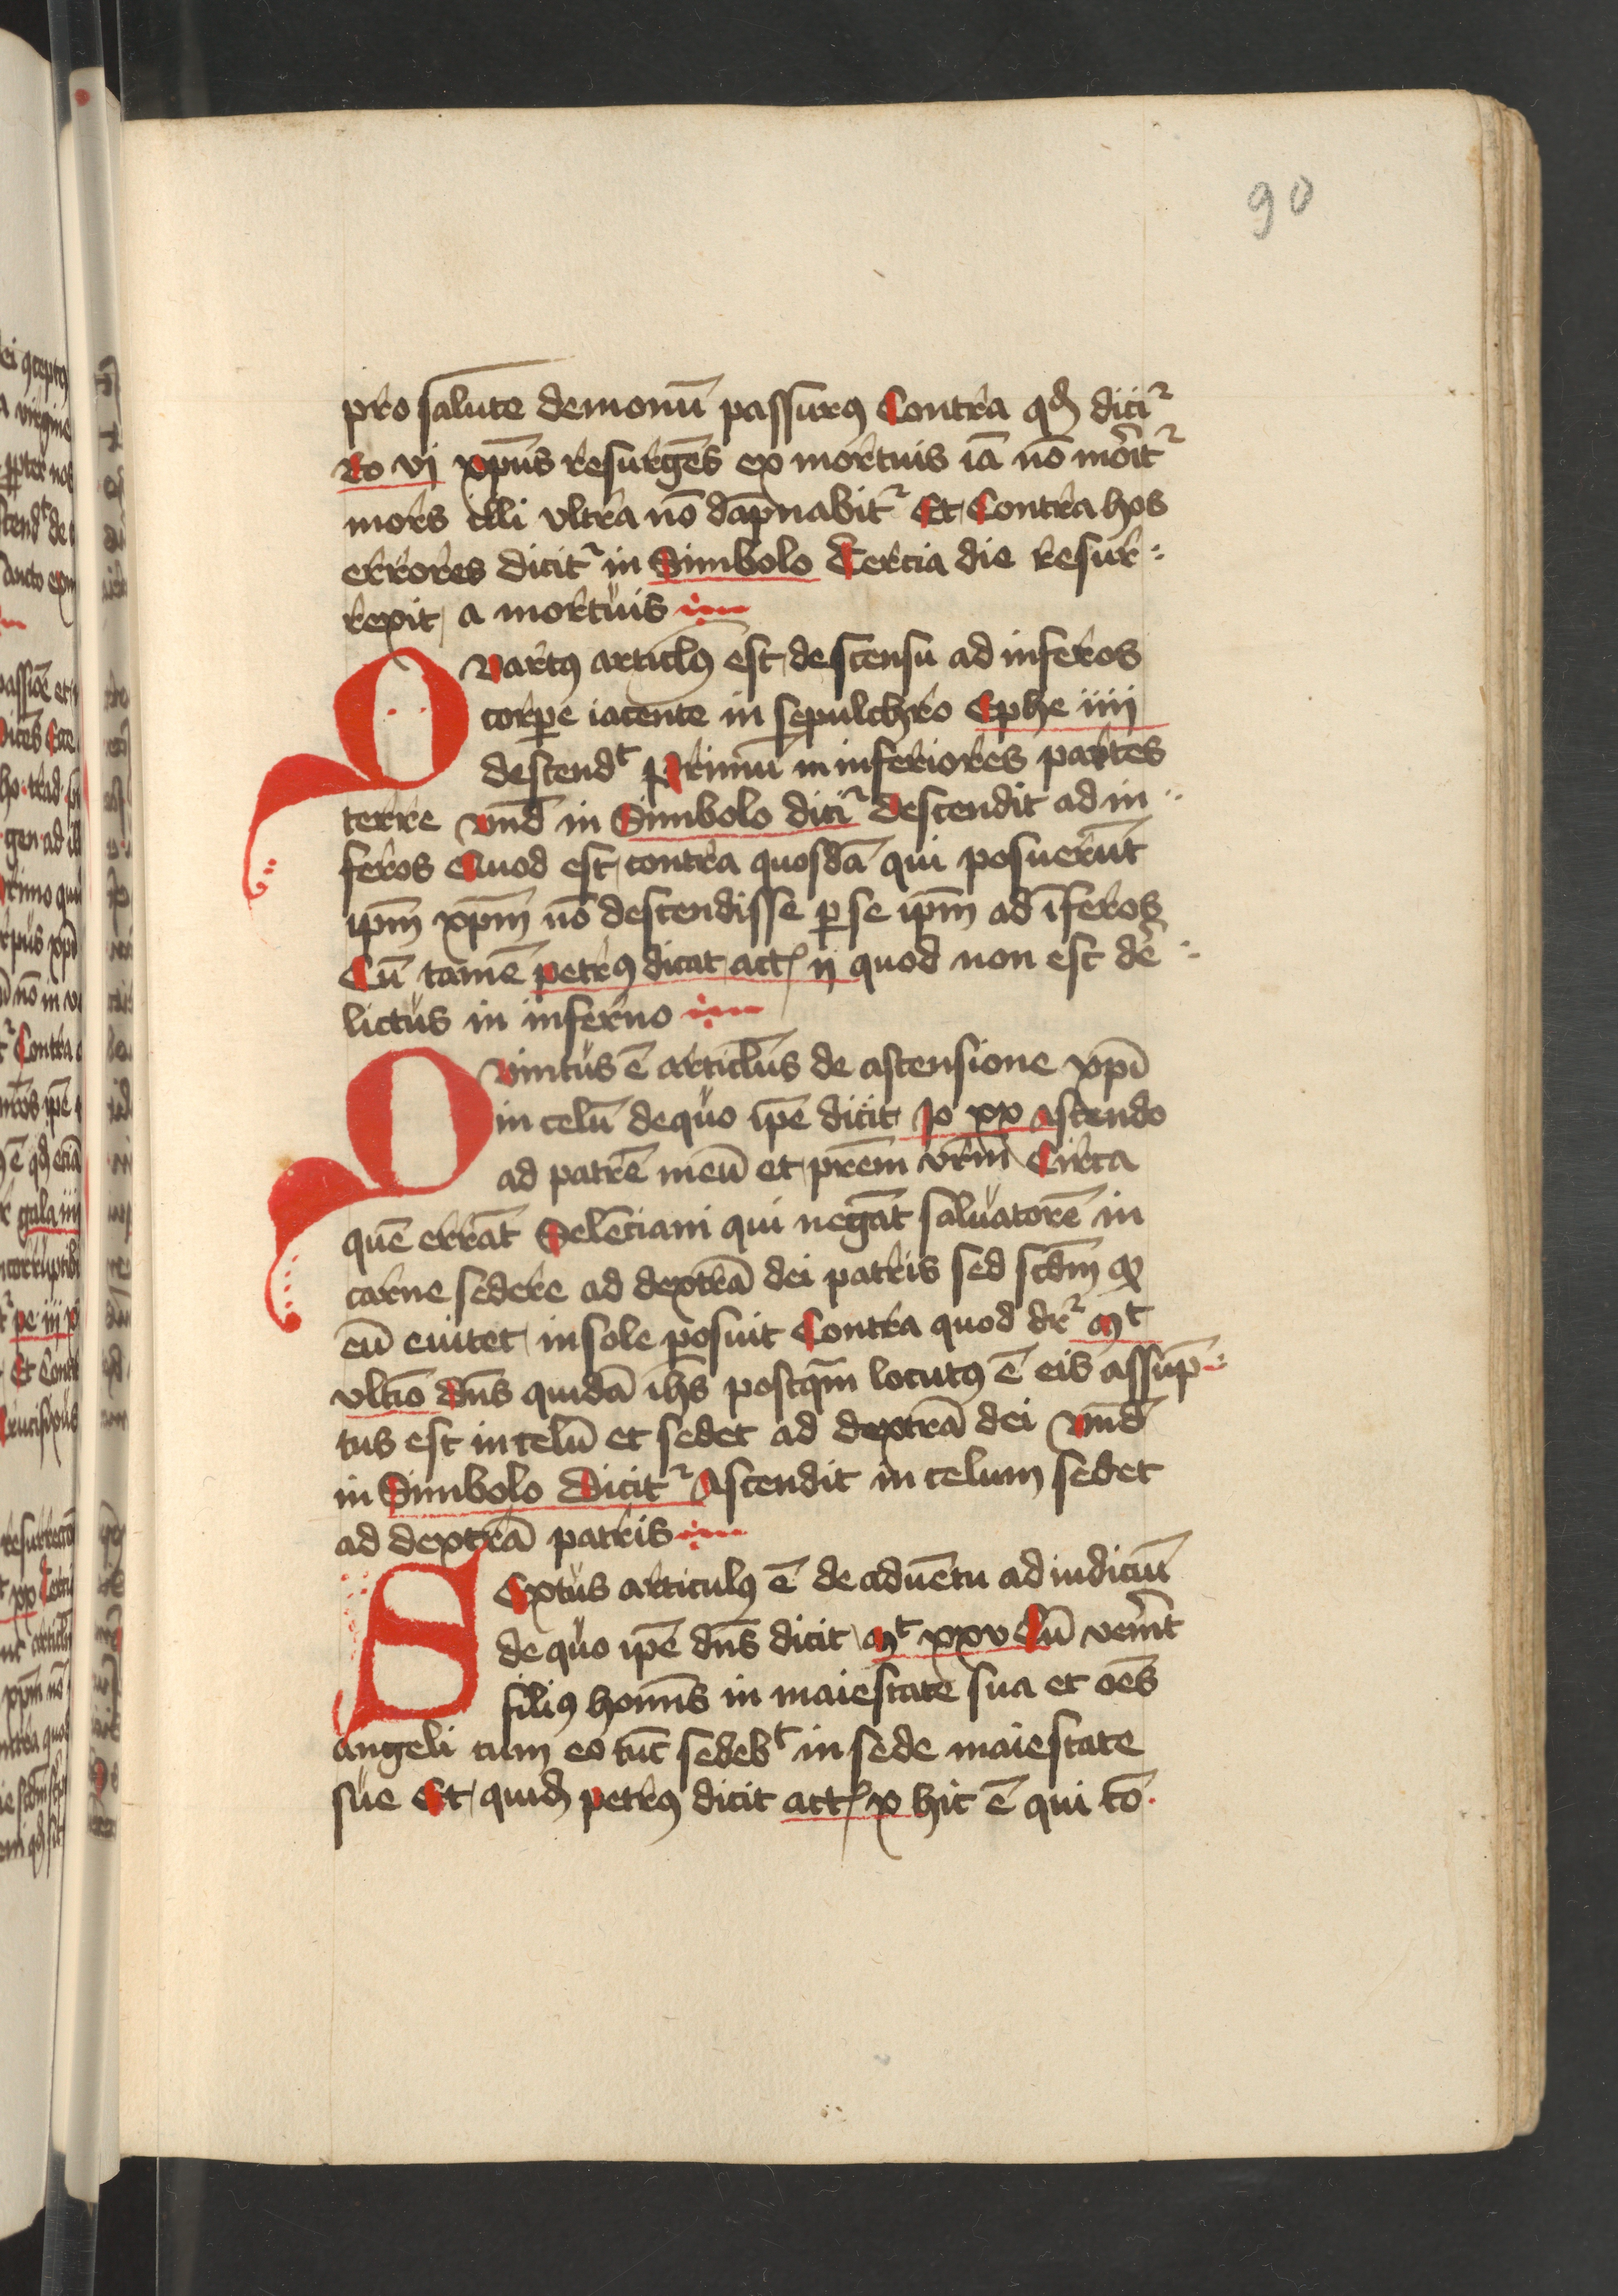 90
pro salute demonū passurꝰ Contra qd̄ diciᷣ
Ro vj xp̄us resurgēs ex mortuis iā nō morit᷑
mors illi vltra nō dāpnabit᷑ Et Contra hos
errores dicit᷑ in Simbolo Tercia die resur
rexit a mortuis
Quartꝰ articlꝰ est descensu ad inferos
corpe iacente in sepulchro Ephe iiij
descendᵗ Primū in inferiores partes
terre vnd̄ in Simbolo dici᷑ descendit ad in
feros Quod est contra quosdā qui posuerūt
ip̄m xp̄m nō descendisse ꝑ se ip̄m ad īferos
Cū tamē petrꝰ dicat act ij quod non est de
lictus in inferno
Quintus ē articlūs de ascensione xp̄i
in celū de quo ip̄e dicit Jo xx Ascendo
ad patrē meū et prēm vr̄m Circa
quē errāt Selēciani qui negāt saluatorē in
carne sedere ad dextrā dei patris sed scdm̄ qꝫ
eū euitet in sole posuit Contra quod dr᷑ Mᵗ
vltīo dn̄s quidā ih̄s postq̄m locutꝰ ē eis assūp
tus est in celū et sedet ad dextrā dei vnd̄
in Simbolo Dicit᷑ Ascendit in celum sedet
ad dextrā patris
Sextus articulꝰ ē de aduētu ad iudiciū
de quo ip̄e dn̄s dicit Mᵗ xxv Cū venīt
filiꝰ homīs in maiestate sua et oēs
angeli cum eo tūc sedebᵗ in sede maiestate
sue Et quid̄ petrꝰ dicit act x hic ē qui cō